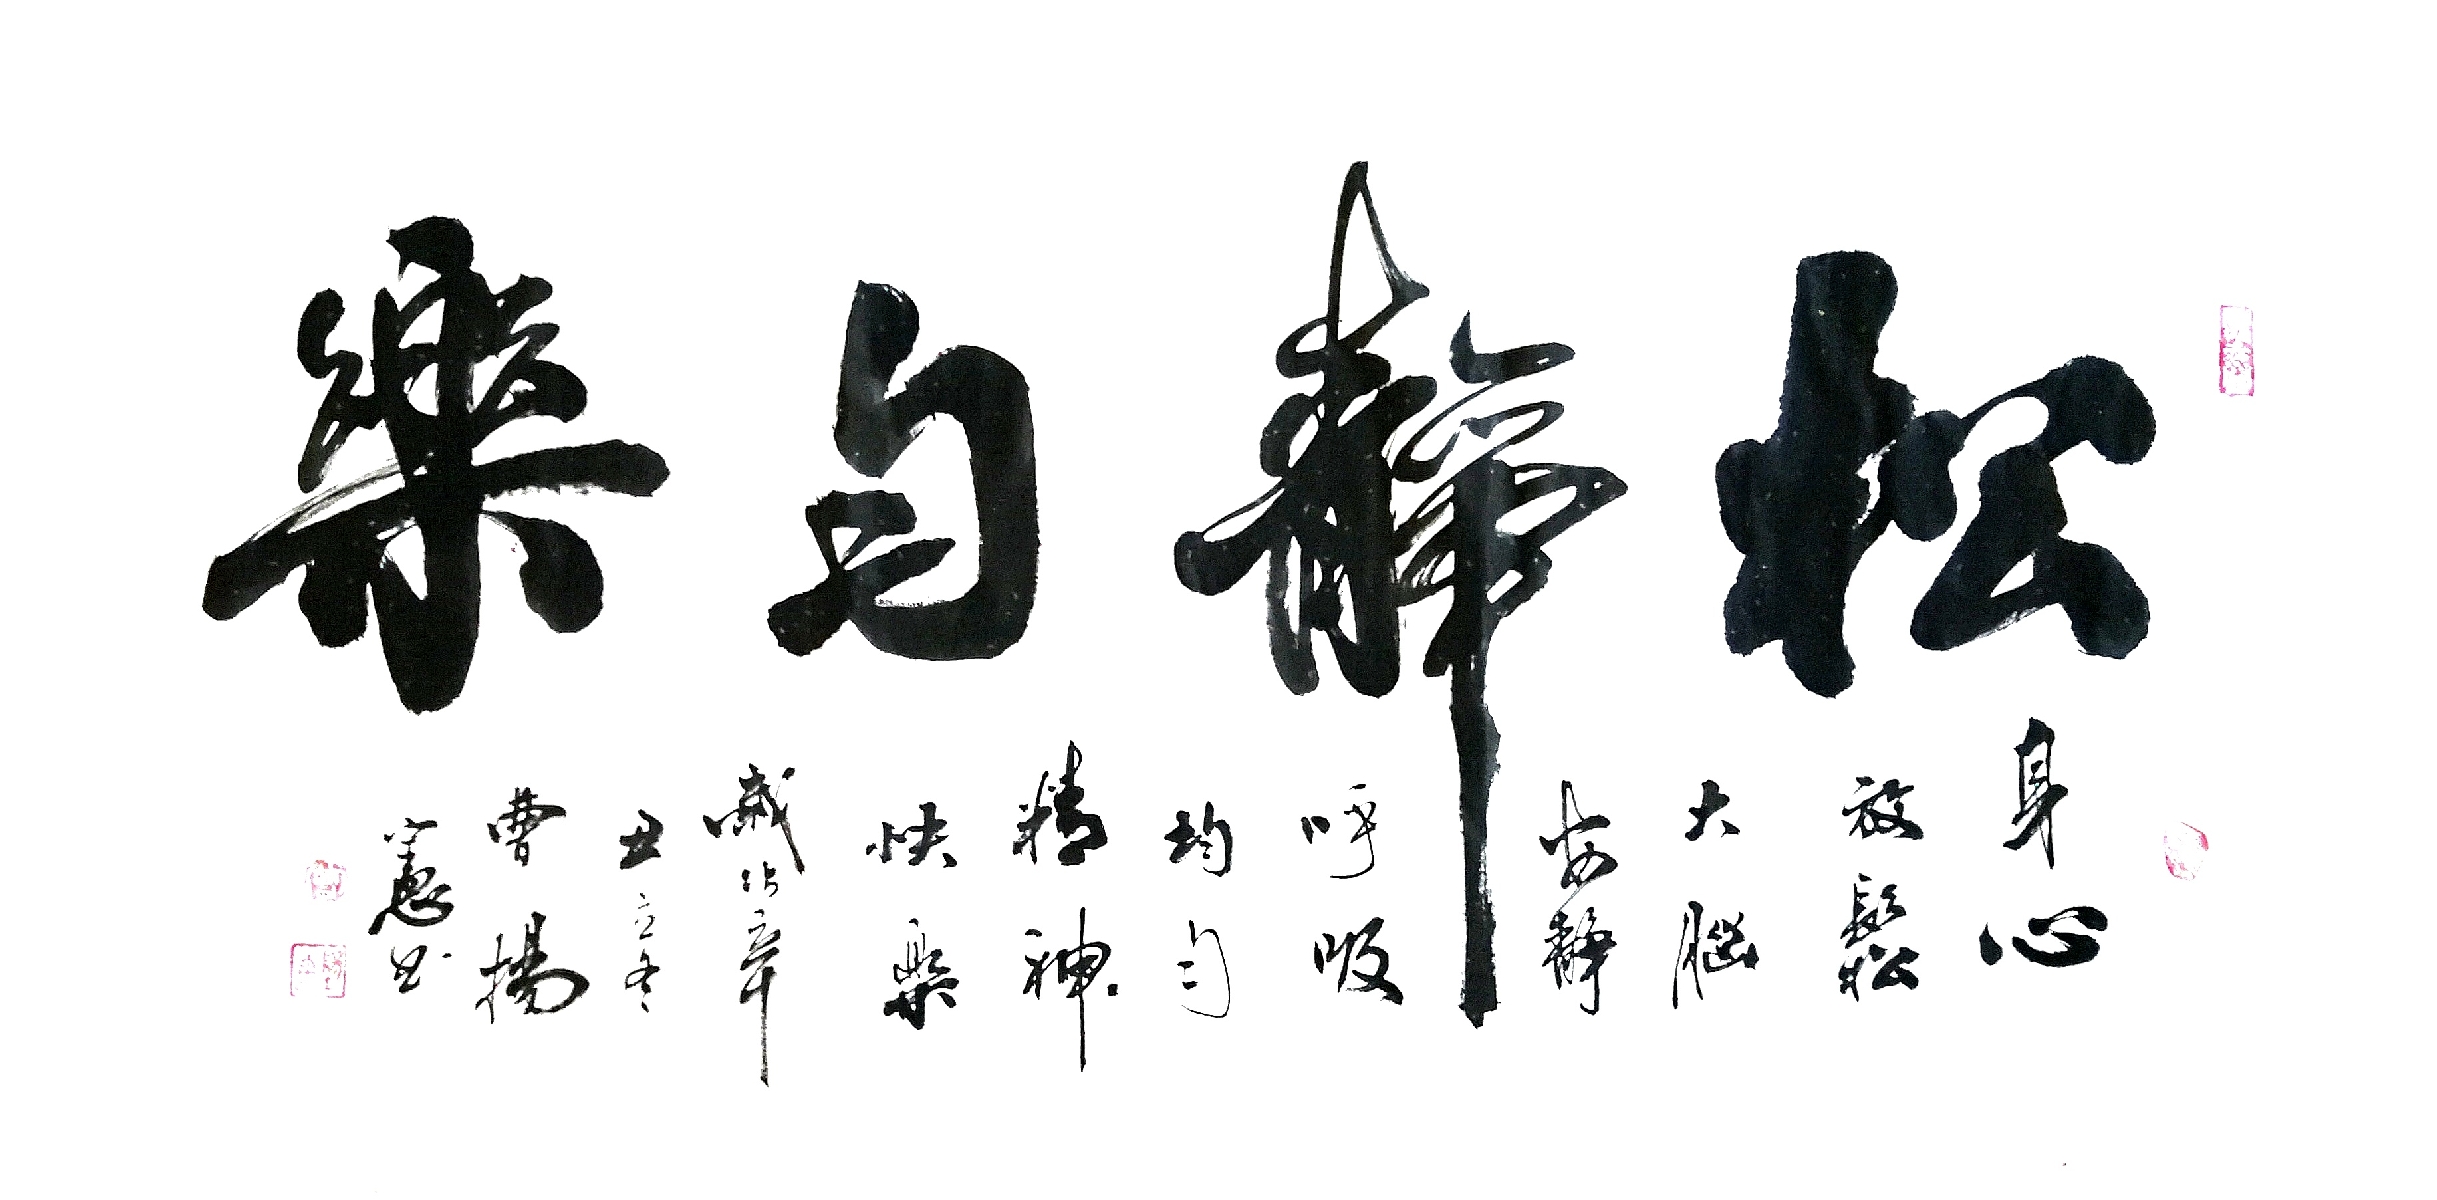 松靜匀樂
身心
放鬆
大腦
安靜
呼吸
均匀
精神
快樂
歲次辛
丑立冬
曹揚
憲书